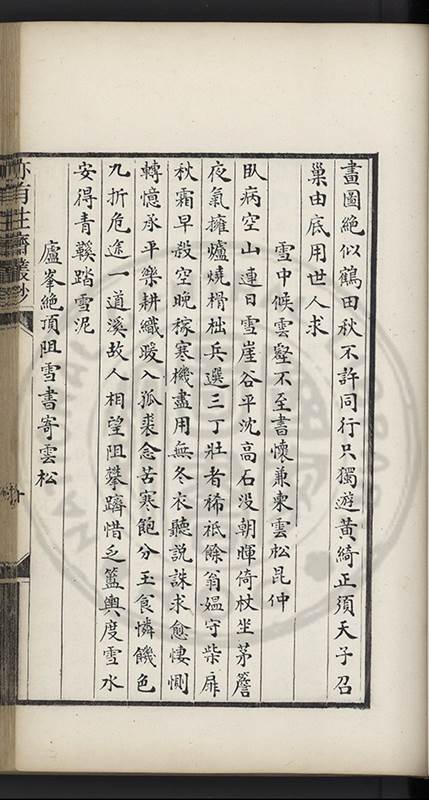 畫圖絶似鶴田秋不許同行只獨遊黃綺正須天子召
巢由底用世人求
雪中候雲壑不至書懷兼柬雲松昆仲
臥病空山連日雪崖谷平沈高石没朝暉倚杖坐茅簷
夜氣擁爐燒榾柮兵選三丁壯者稀衹餘翁媼守柴扉
秋霜早殺空晚稼寒機盡用無冬衣聽説誅求愈悽惻
轉憶承平樂耕織暖入狐裘念苦寒飽分玉食憐饑色
九折危途一道溪故人相望阻攀躋惜乏籃輿度雪水
安得青鞵踏雪泥
廬峯絶頂阻雪書寄雲松
亦有生齋叢鈔